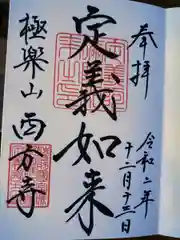 奉拝
令和二年
十二月十三日
定義如来
極楽山
西方寺